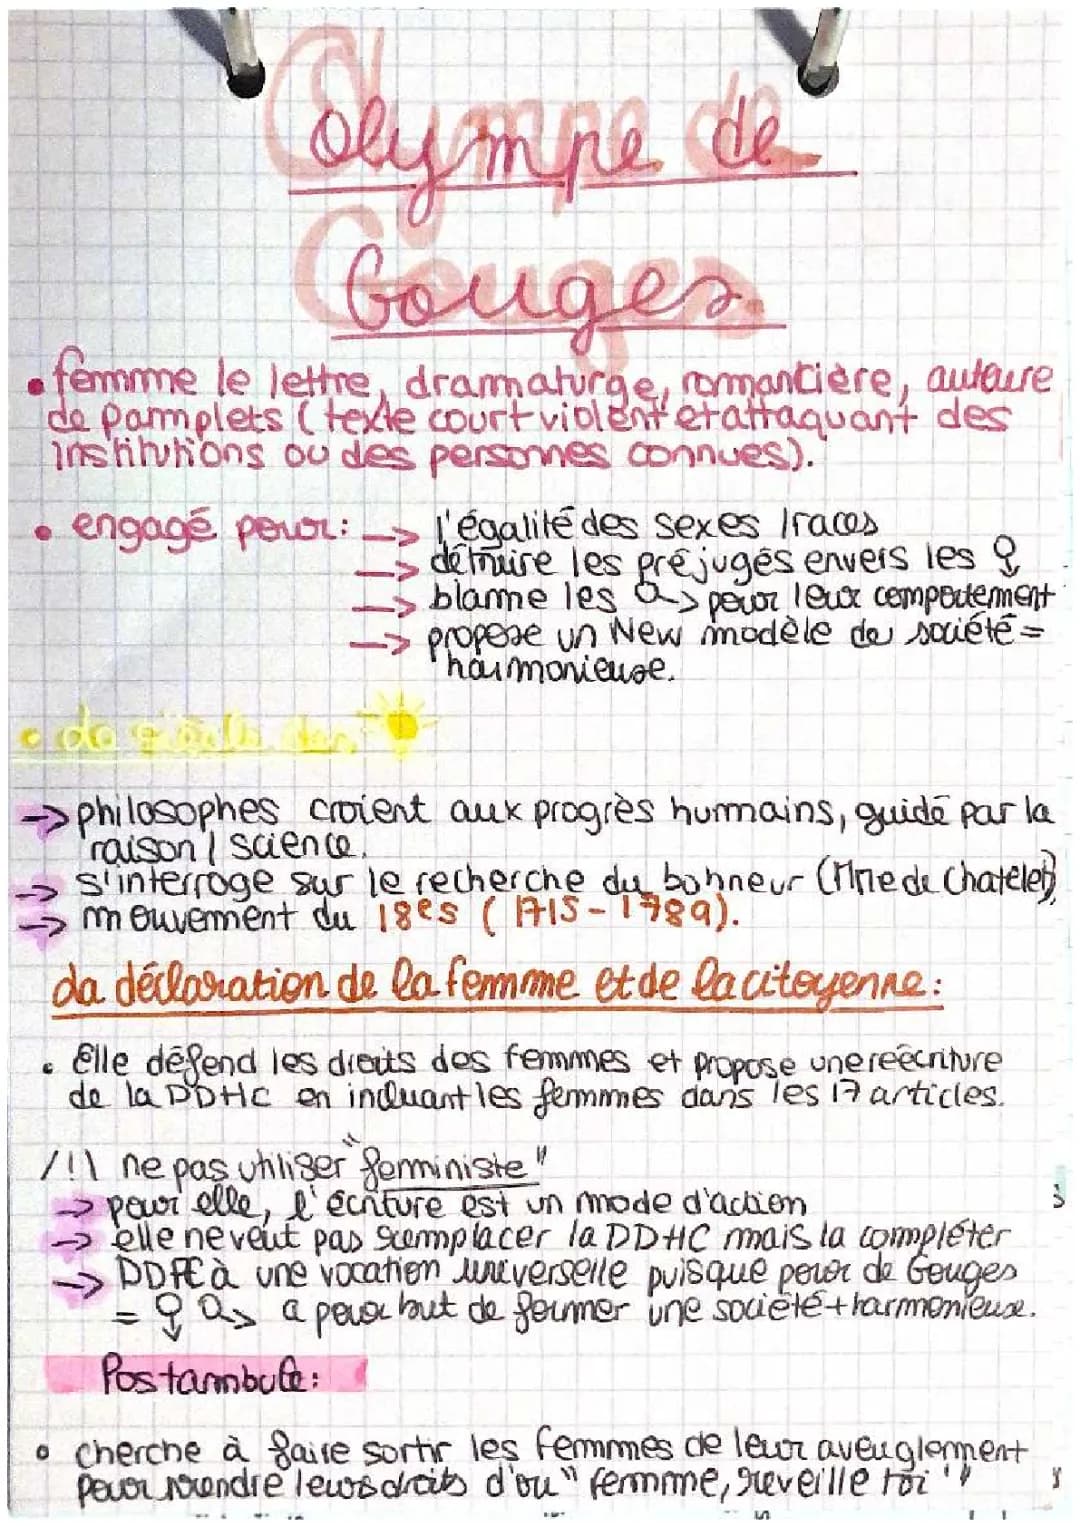 Olympe de
Gouges.
• femme le lettre, dramaturge, romantière, auteure
de pamplets (texte court violent et attaquant des
institutions ou des personnes connues).
• engagé pour: → l'égalité des sexes / races
→ détruire les préjugés envers les ♀
→ blame les ♂ pour leur comportement
→ propose un New modèle de société =
harmonieuse.
→ philosophes croient aux progrès humains, guidé par la
raison / science.
→ s'interroge sur le recherche du bonheur (Mme de Chatelet)
→ mouvement du 18es (1715-1789).
La déclaration de la femme et de la citoyenne:
• Elle défend les droits des femmes et propose une réécriture
de la DDHC en incluant les femmes dans les 17 articles.
/!\ ne pas utiliser "feministe"
→ pour elle, l'écriture est un mode d'action
→ elle ne veut pas remplacer la DDHC mais la compléter
→ DDFC à une vocation universelle puisque pour de Gouges
= ♀ ♂ a pour but de former une société + harmonieuse.
Postambule:
• cherche à faire sortir les femmes de leur aveuglement
pour prendre leurs droits d'ou "femme, reveille toi"